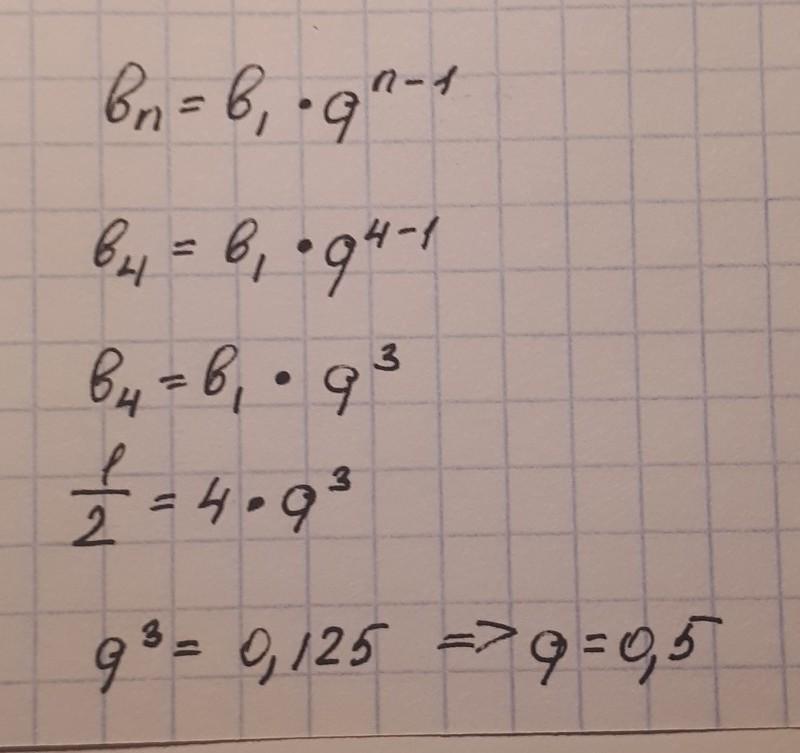 bₙ = b₁ · qⁿ⁻¹
b₄ = b₁ · q⁴⁻¹
b₄ = b₁ · q³
1/2 = 4 · q³
q³ = 0,125 => q = 0,5